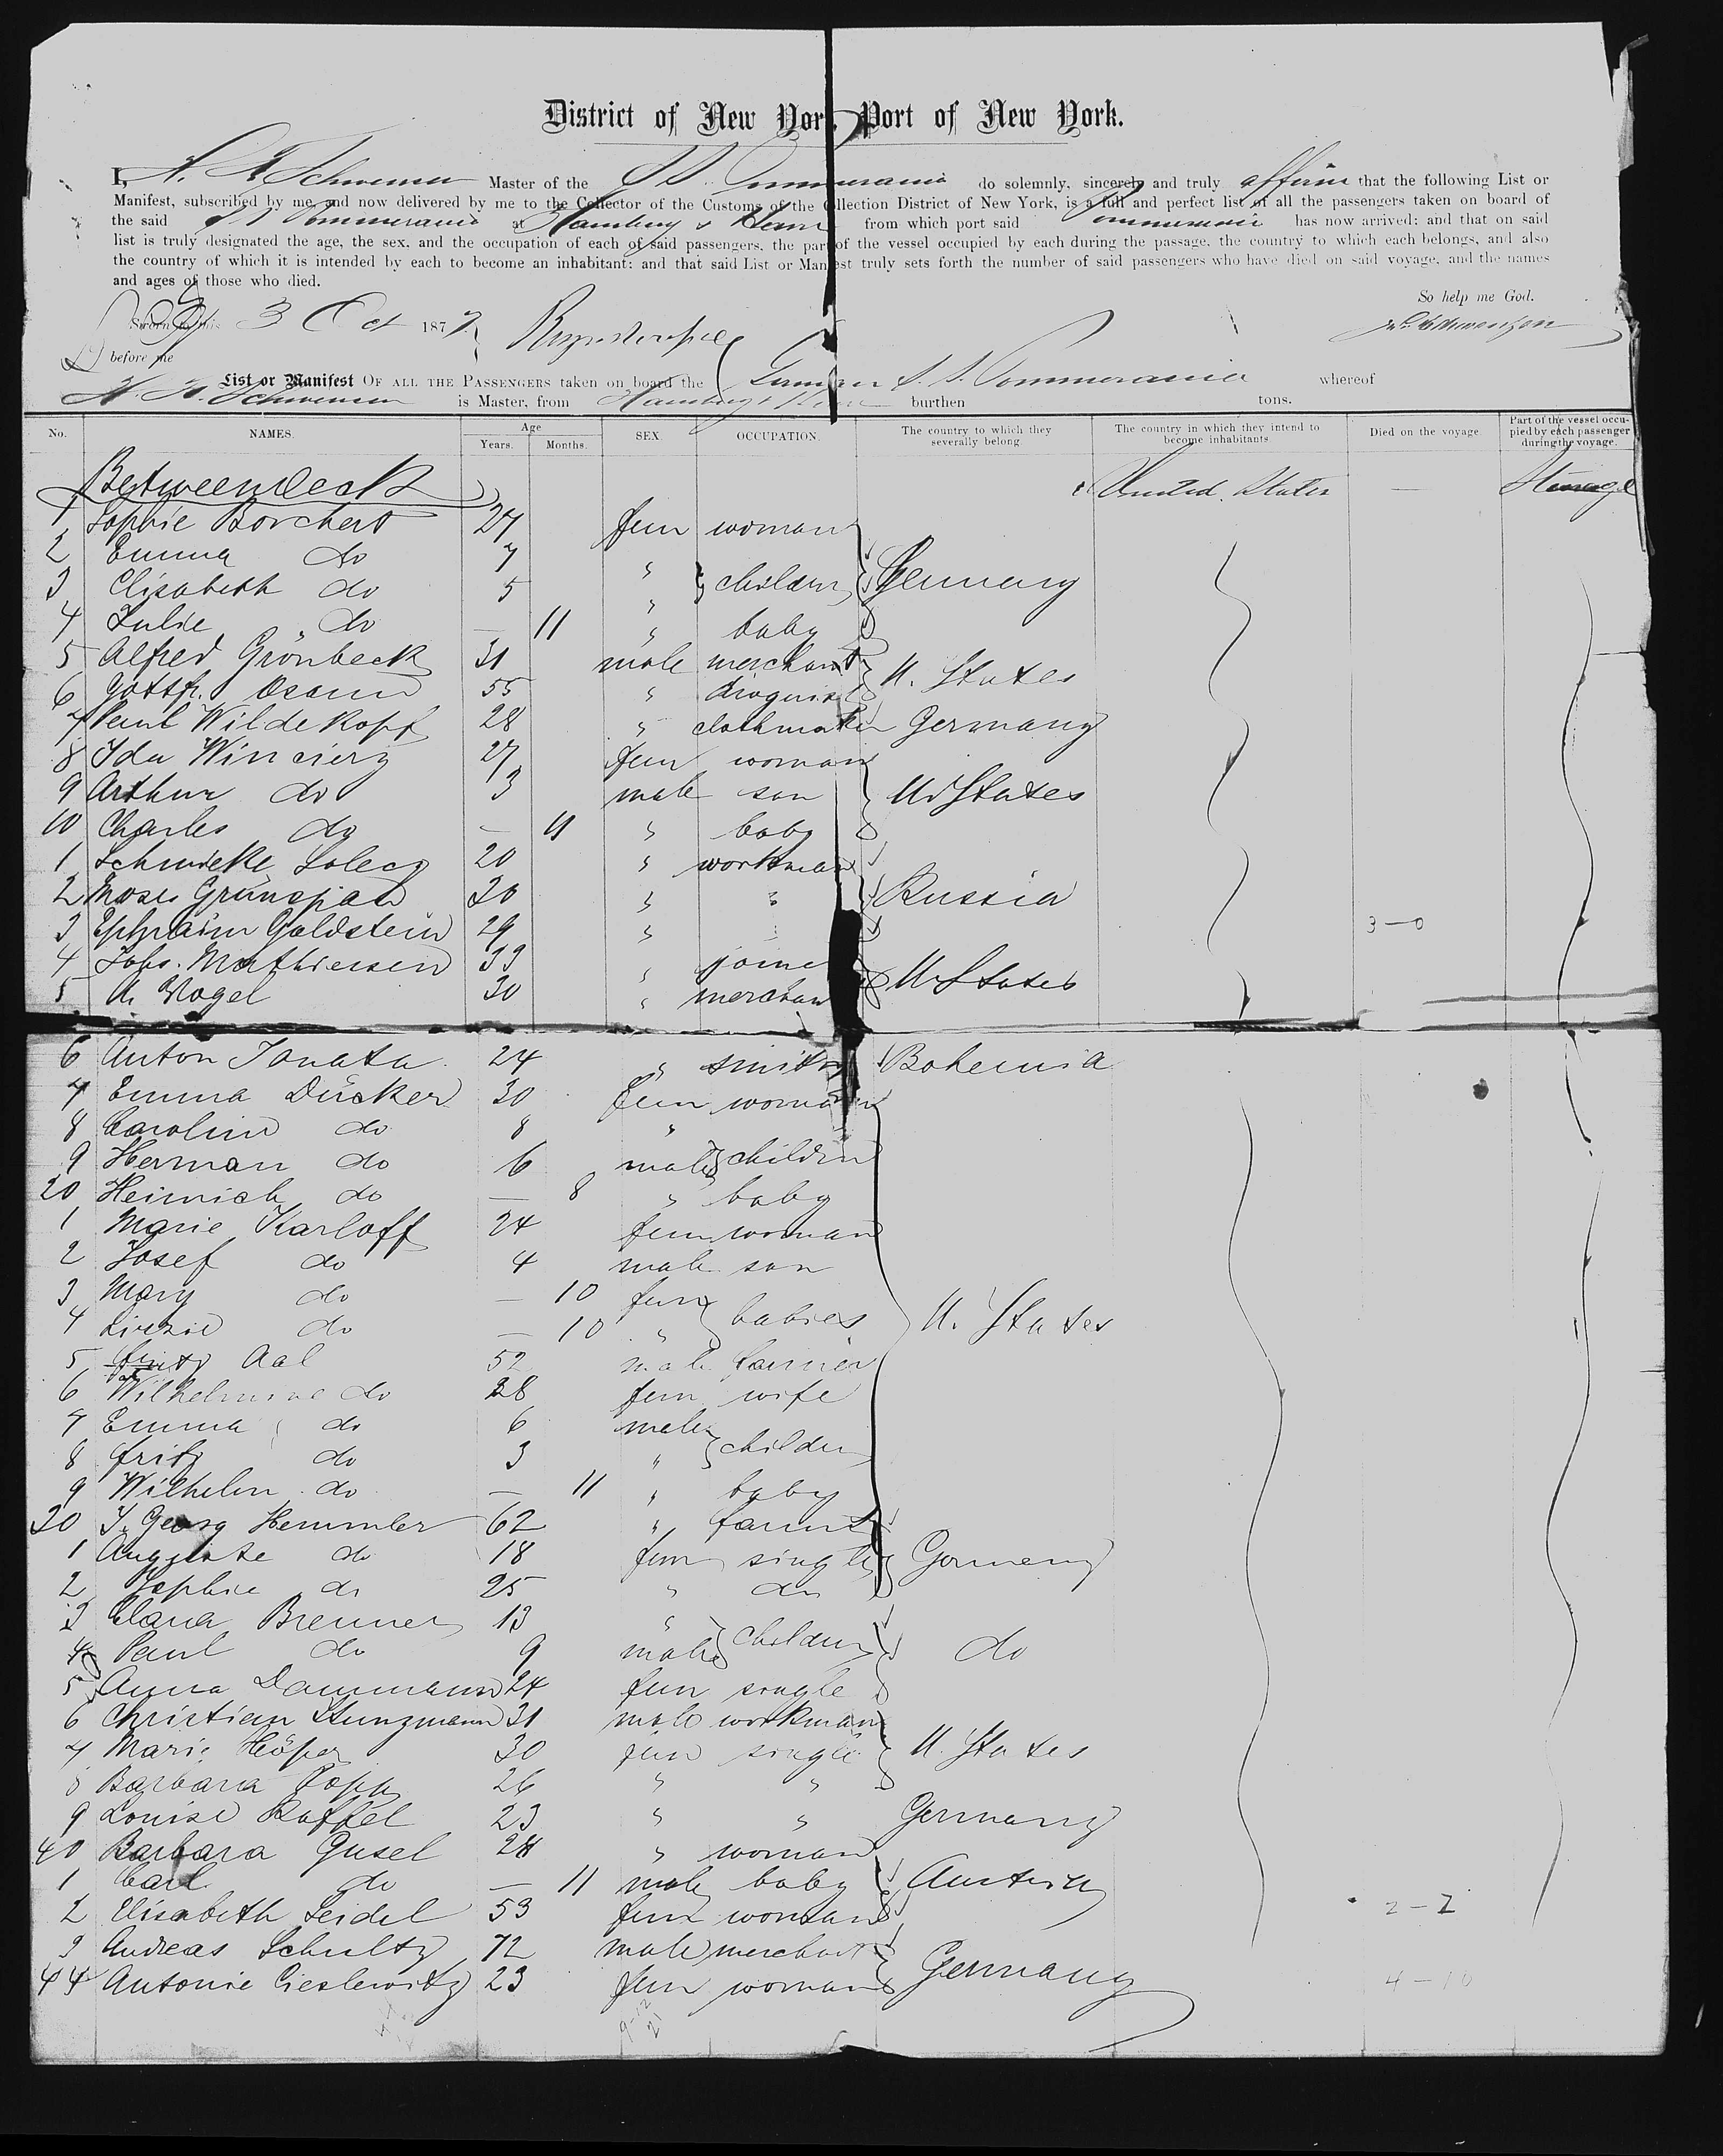 District of New York, Port of New York.
I, H. F. Schwensen Master of the S S Pommerania do solemnly, sincerely and truly affirm that the following List or
Manifest, subscribed by me, and now delivered by me to the Collector of the Customs of the Collection District of New York, is a full and perfect list of all the passengers taken on board of
the said S S Pommerania at Hamburg & Havre from which port said Pommerania has now arrived; and that on said
list is truly designated the age, the sex, and the occupation of each of said passengers, the part of the vessel occupied by each during the passage, the country to which each belongs, and also
the country of which it is intended by each to become an inhabitant; and that said List or Manifest truly sets forth the number of said passengers who have died on said voyage, and the names
and ages of those who died.
So help me God.
Sworn to this 3 Oct 1877
before me
List or Manifest OF ALL THE PASSENGERS taken on board the German S. S. Pommerania whereof
is Master, from Hamburg & Havre burthen tons.
No. NAMES. Age Years. Months. SEX. OCCUPATION. The country to which they severally belong The country in which they intend to become inhabitants. Died on the voyage. Part of the vessel occupied by each passenger during the voyage.
Betweendeck United States — Steerage
1 Sophie Borchert 27 fem woman
2 Emma do 7 "
3 Elisabeth do 5 " children Germany
4 Julie do — 11 " baby
5 Alfred Grönbeck 31 male merchant U. States
6 Gottfr. Osann 55 " droguist
7 Paul Wildekopf 28 " clothmaker Germany
8 Ida Winciery 27 fem woman
9 Arthur do 3 male son U. States
10 Charles do — 11 " baby
1 20 " workman
2 Moses Grünspan 20 " " Russia
3 Ephraim Goldstein 29 " " 3-0
4 Johs. Mathiesen 33 " joiner U. States
5 A. Vogel 30 " merchant
6 Anton Janata 24 " smith Bohemia
7 Emma Dücker 30 fem woman
8 Caroline do 8 "
9 Herman do 6 male children
20 Heinrich do — 8 " baby
1 Marie Karloff 24 fem woman
2 Josef do 4 male son
3 Mary do — 10 fem
4 do — 10 " babies U. States
5 Fritz Aal 52 male farmer
6 Wilhelmine do 28 fem wife
7 Emma do 6 male
8 Fritz do 3 " children
9 Wilhelm do — 11 " baby
30 J. Georg Hemmler 62 " farmer
1 Auguste do 18 fem single Germany
2 Sophie do 25 " do
3 Clara Brenner 13 "
4 Paul do 9 male children do
5 Anna Dammann 24 fem single
6 Christian Kunzmann 31 male workman
7 Marie Höper 30 fem single U. States
8 Barbara Popp 26 " "
9 Louise Raffel 23 " " Germany
40 Barbara Gusel 28 " woman
1 Carl do — 11 male baby Austria
2 Elisabeth Seidel 53 fem woman 2-2
3 Andreas Schultz 72 male merchant
44 Antonie Cieslewitz 23 fem woman Germany 4-10